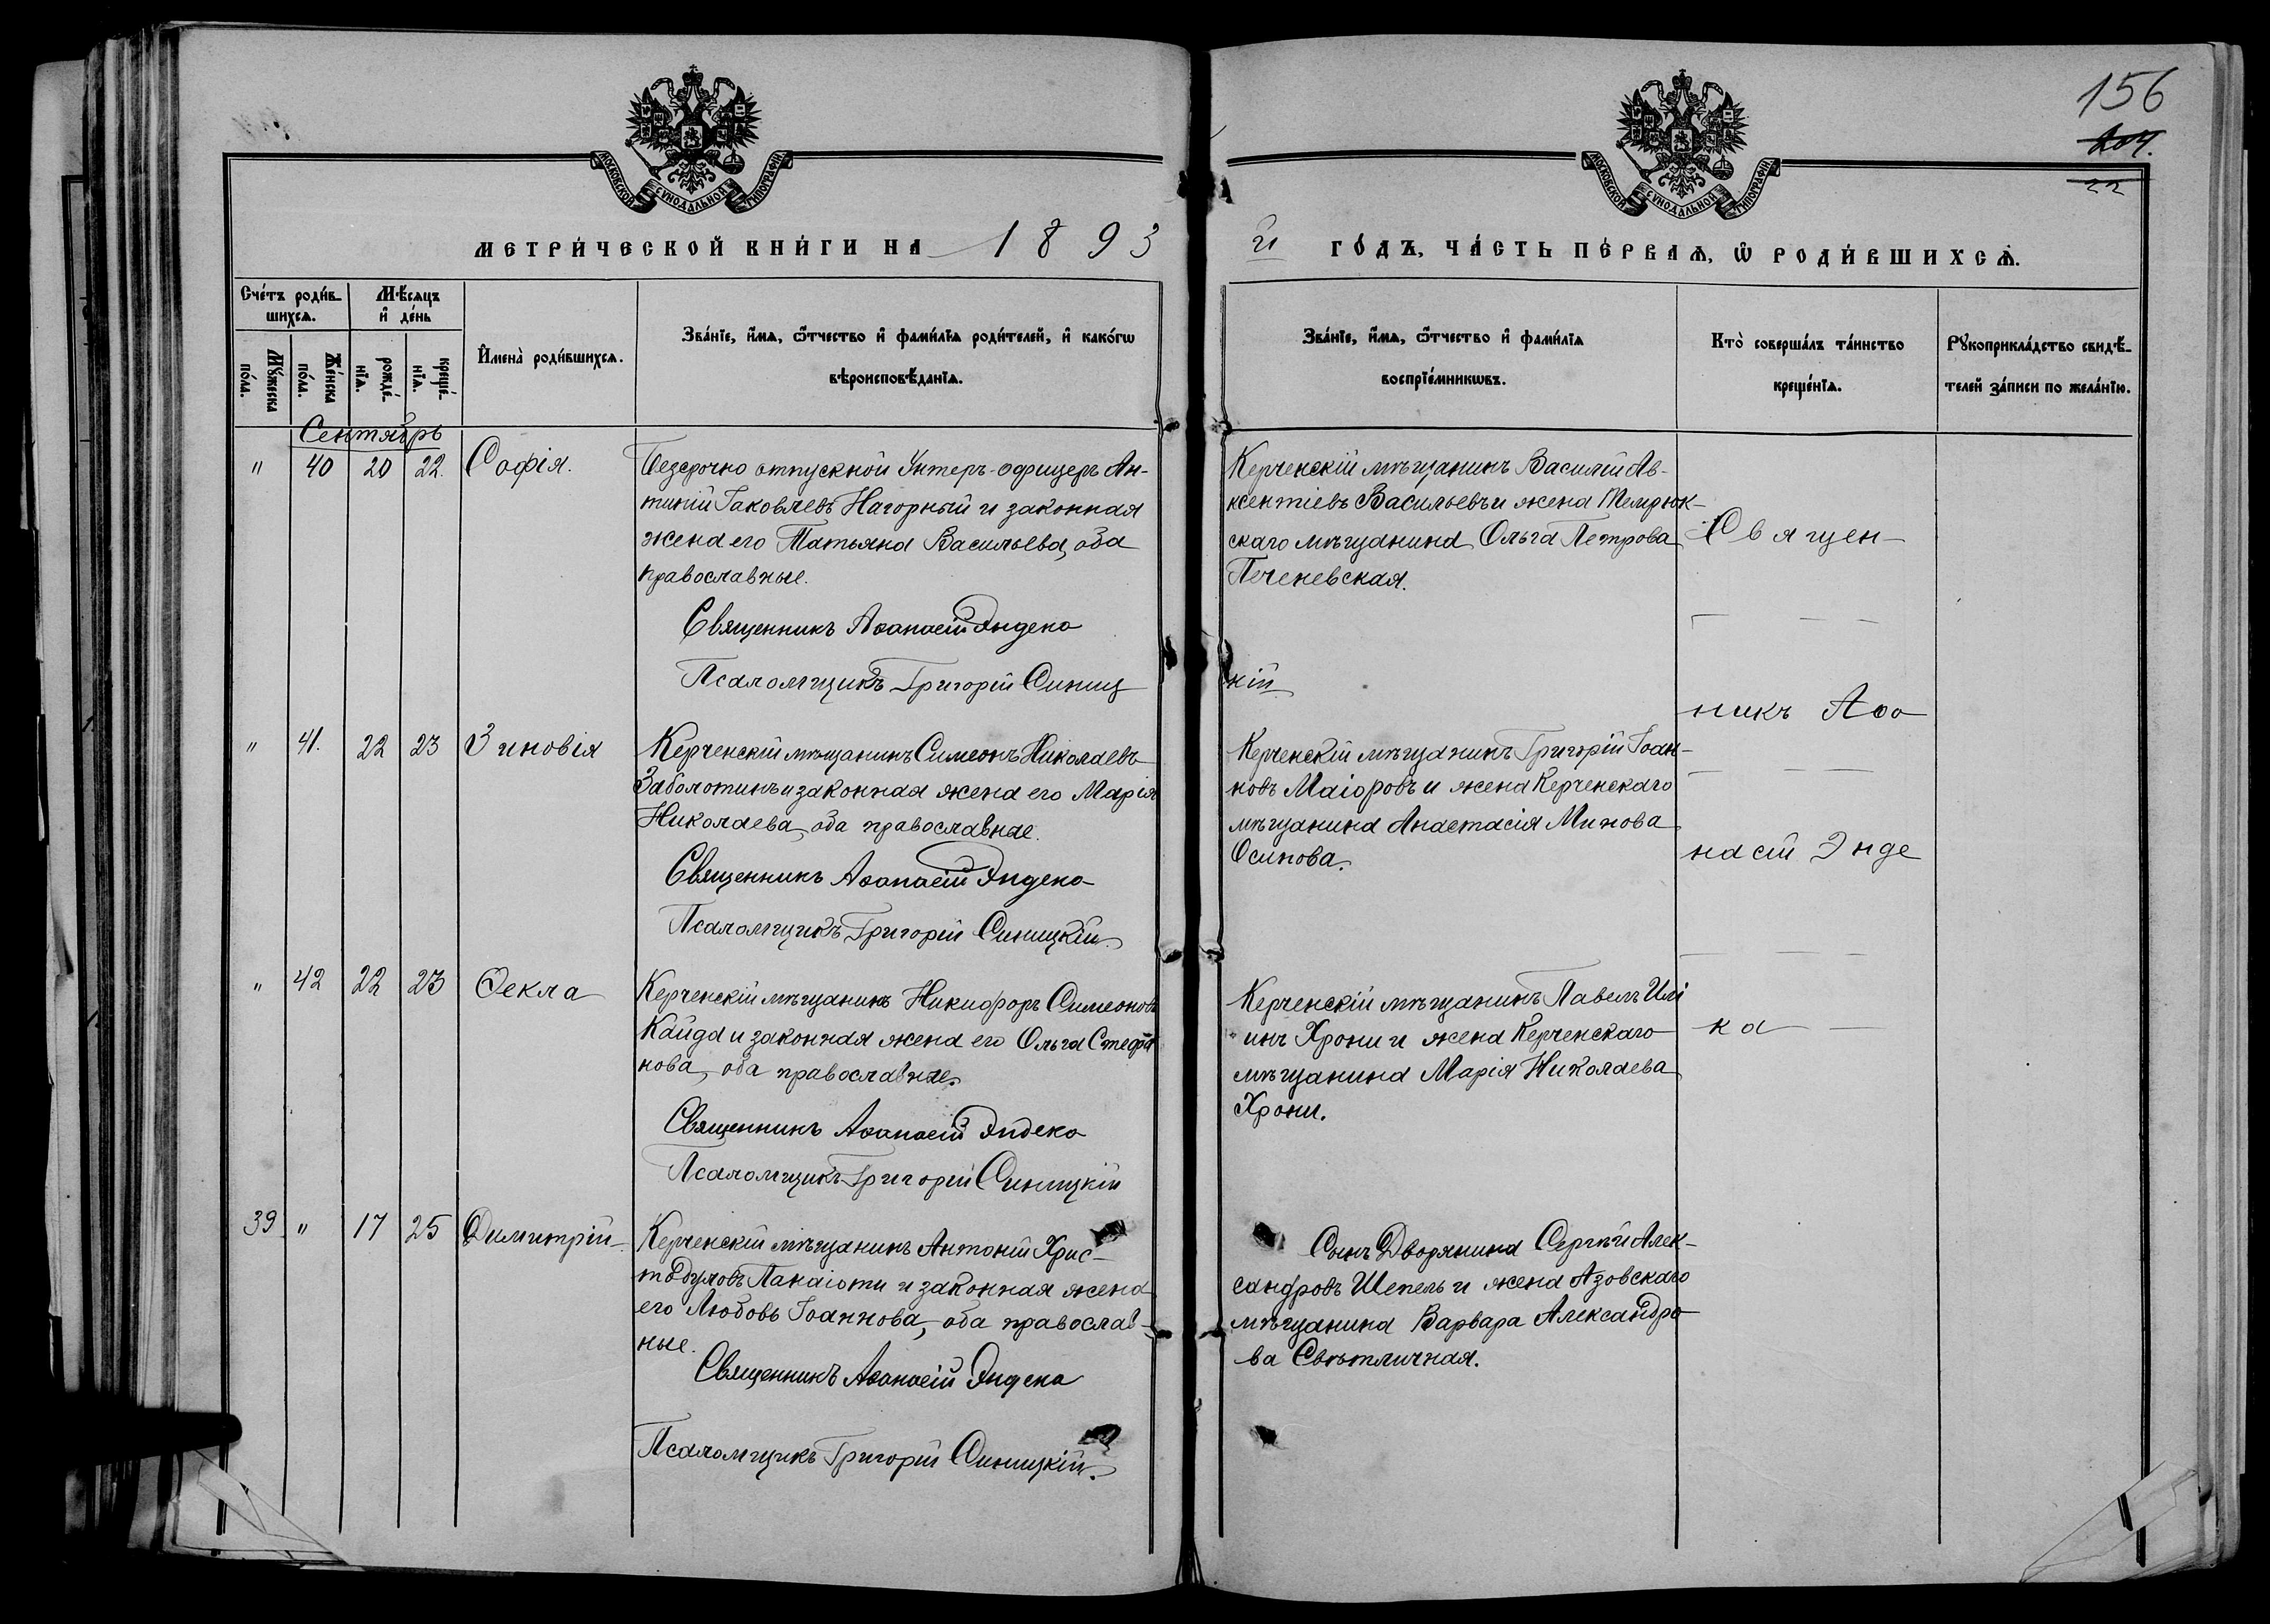 156
204.
22
МОСКОВСКОЙ СѴНОДАЛЬНОЙ ТИПОГРАФІИ
МОСКОВСКОЙ СѴНОДАЛЬНОЙ ТИПОГРАФІИ
МЕТРИ́ЧЕСКОЙ КНИ́ГИ НА 1893
й ГО́ДЪ, ЧА́СТЬ ПЕ́РВАѦ, Ѽ РОДИ́ВШИХСѦ.
Сче́тъ роди́в-
шихсѧ.
Мѣ́сяцъ
и҆ де́нь
Мꙋ́жеска
по́ла.
Же́нска
по́ла.
рожде́-
нїѧ.
креще́-
нїѧ.
И҆мена̀ роди́вшихсѧ.
Зва́нїе, и҆́мѧ, ѻ҆́тчество и҆ фами́лїѧ роди́телей, и҆ како́гѡ
вѣроисповѣ́данїѧ.
Зва́нїе, и҆́мѧ, ѻ҆́тчество и҆ фами́лїѧ
воспрїе́мникѡвъ.
Кто̀ соверша́лъ та́инство
креще́нїѧ.
Рꙋкоприкла́дство свидѣ́-
телей за́писи по жела́нїю.
Сентябрь
" 40 20 22. Софія.
Безсрочно отпускной Унтеръ-офицеръ Ан-
тиній Іаковлевъ Нагорный и законная
жена его Татьяна Васильева, оба
православные.
Священникъ Аѳанасій Эндека
Псаломщикъ Григорій Синиц
кій
Керченскій мѣщанинъ Василій Ав-
ксентіевъ Васильевъ и жена Темрюк-
скаго мѣщанина Ольга Петрова
Печеневская.
Священ-
никъ Аѳа
насій Энде
ка
" 41. 22 23 Зиновія
Керченскій мѣщанинъ Симеонъ Николаевъ
Заболотинъ и законная жена его Марія
Николаева, оба православные.
Священникъ Аѳанасій Эндека
Псаломщикъ Григорій Синицкій.
Керченскій мѣщанинъ Григорій Іоан-
новъ Маіоровъ и жена Керченскаго
мѣщанина Анастасія Минова
Осипова.
" 42 22 23 Ѳекла
Керченскій мѣщанинъ Никифоръ Симеоновъ
Кайда и законная жена его Ольга Стефа
нова, оба православные.
Священникъ Аѳанасій Эндека
Псаломщикъ Григорій Синицкій
Керченскій мѣщанинъ Павелъ Илі
инъ Хрони и жена Керченскаго
мѣщанина Марія Николаева
Хрони.
39 " 17 25 Димитрій
Керченскій мѣщанинъ Антоній Хрис-
тодуловъ Панаіоти и законная жена
его Любовь Іоаннова, оба православ-
ные.
Священникъ Аѳанасій Эндека
Псаломщикъ Григорій Синицкій.
Сынъ Дворянина Сергѣй Алек-
сандровъ Шепель и жена Азовскаго
мѣщанина Варвара Александро
ва Свѣтличная.